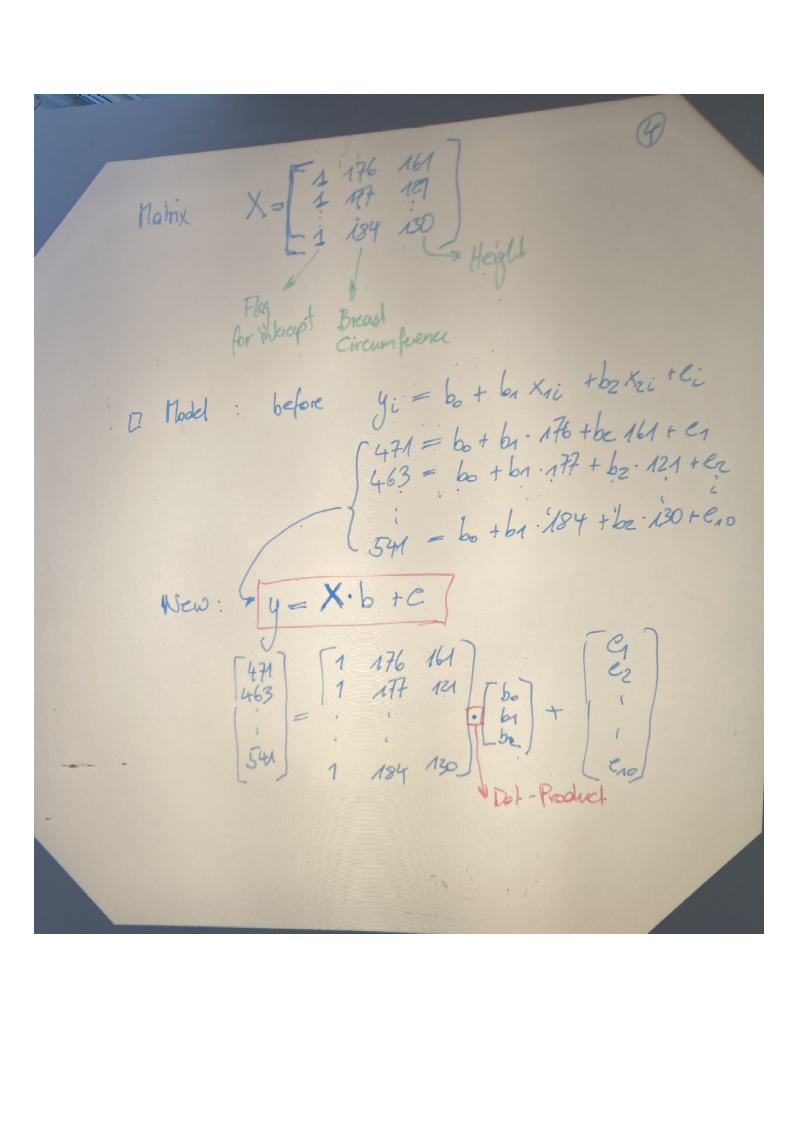 4
Matrix X = [ 1 176 161
1 177 121
⋮ ⋮ ⋮
1 184 130 ]
Height
Flag
for intercept
Breast
Circumference
□ Model : before yi = b0 + b1 x1i + b2 x2i + ei
471 = b0 + b1 · 176 + b2 161 + e1
463 = b0 + b1 · 177 + b2 · 121 + e2
⋮
541 = b0 + b1 · 184 + b2 · 130 + e10
New : y = X · b + e
[ 471 ] [ 1 176 161 ] [ e1 ]
[ 463 ] [ 1 177 121 ] [ b0 ] [ e2 ]
[ ⋮ ] = [ ⋮ ⋮ ] · [ b1 ] + [ ⋮ ]
[ 541 ] [ 1 184 130 ] [ b2 ] [ e10 ]
Dot-Product